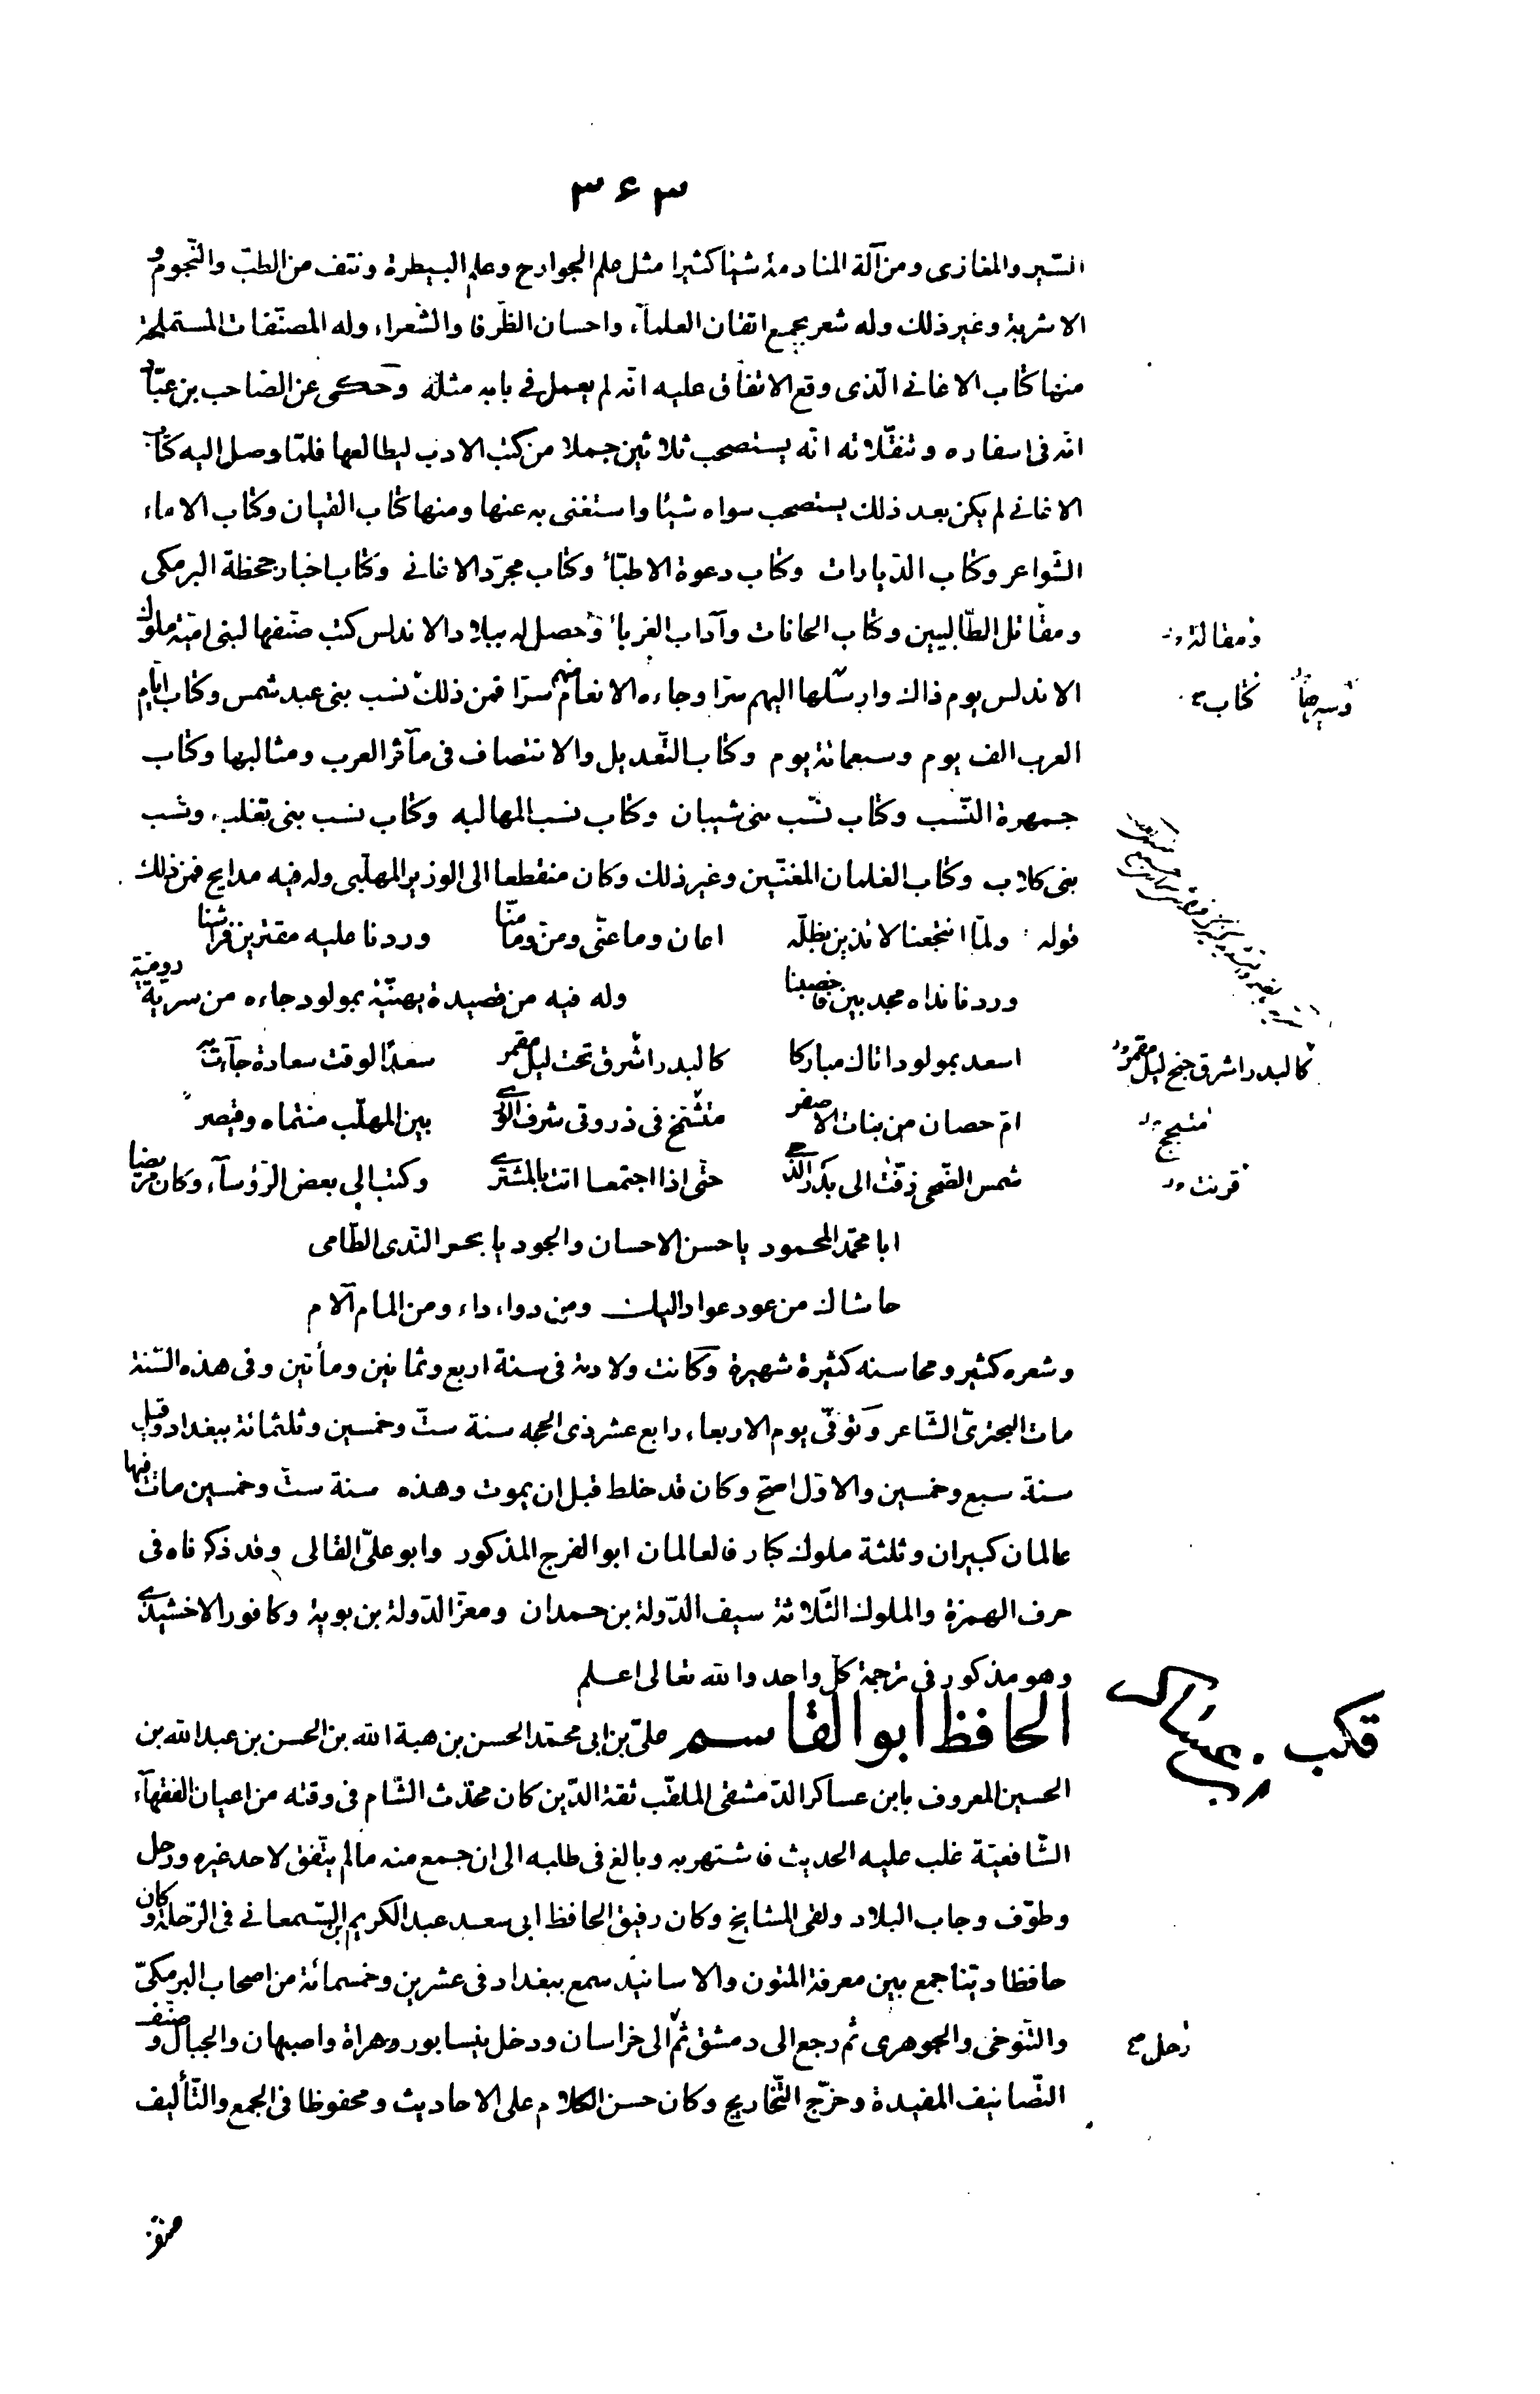 ٣٤٣
السّير والمغازى ومن آلة المنادمة شيئا كثيرا مثل علم الجوارح وعلم البيطرة ونتف من الطبّ والنّجوم و
الاشربة وغير ذلك وله شعر يجمع اتقان العلمآء واحسان الظّرفا والشّعراء وله المصنّفات المستملحة
منها كتاب الاغانى الّذى وقع الاتفاق عليه انّه لم يعمل فى بابه مثله وحكى عن الصّاحب بن عبّاد
انّه فى اسفاره وتنقّلاته انّه يستصحب ثلاثين جملا من كتب الادب ليطالعها فلمّا وصل اليه كتاب
الاغانى لم يكن بعد ذلك يستصحب سواه شيئا واستغنى به عنها ومنها كتاب القيان وكتاب الاماء
الشّواعر وكتاب الدّيارات وكتاب دعوة الاطبّأ وكتاب مجرّد الاغانى وكتاب اخبار جحظة البرمكى
ومقاتل الطّالبيين وكتاب الحانات وآداب الغربأ وحصل له ببلاد الاندلس كتب صنّفها لبنى اميّة ملوك
ومقالة
الاندلس يوم ذاك وارسلها اليهم سرّا وجاءه الانعام منهم سرّا فمن ذلك نسب بنى عبد شمس وكتاب ايّام
كتاب
وسيرها
العرب الف يوم وسبعمائة يوم وكتاب التّعديل والانتصاف فى مآثر العرب ومثالبها وكتاب
جمهرة النّسب وكتاب نسب بنى شيبان وكتاب نسب المهالبه وكتاب نسب بنى تغلب ونسب
بنى كلاب وكتاب الغلمان المغنّيين وغير ذلك وكان منقطعا الى الوزير المهلّبى وله فيه مدايح فمن ذلك
قوله ولمّا انتجعنا لائذين بظلّه اعان وما عنّى ومنّ وما منّا وردنا عليه مقترين فراشنا
وردنا نداه مجدبين فاخصبنا وله فيه من قصيدة يهنّيه بمولود جاءه من سريّة روميّة
اسعد بمولود اتاك مباركا كالبدر اشرق تحت ليل مقمر سعد لوقت سعادة جآءت به
كالبدر اشرق جنح ليل مقمر
امّ حصان من بنات الاصفر متشمّخ فى ذروتى شرف الورى بين المهلّب منتماه وقيصر
متبجّح
شمس الضّحى زفّت الى بدر الدّجى حتّى اذا اجتمعا اتت بالمشترى وكتب الى بعض الرّؤسآء وكان مريضا
قرنت
ابا محمّد المحمود يا حسن الاحسان والجود يا بحر النّدى الطّامى
حاشاك من عود عوّاد اليك ومن دواء داء ومن المام آلام
وشعره كثير ومحاسنه كثيرة شهيرة وكانت ولادته فى سنة اربع وثمانين ومأتين وفى هذه السّنة
مات البحترىّ الشّاعر وتوفّى يوم الاربعاء رابع عشر ذى الحجه سنة ستّ وخمسين وثلثمائة ببغداد وقيل
سنة سبع وخمسين والاوّل اصحّ وكان قد خلط قبل ان يموت وهذه سنة ستّ وخمسين مات فيها
عالمان كبيران وثلثة ملوك كبار فالعالمان ابو الفرج المذكور وابو علىّ القالى وقد ذكرناه فى
حرف الهمزة والملوك الثّلاثة سيف الدّولة بن حمدان ومعزّ الدّولة بن بويه وكافور الاخشيدى
وهو مذكور فى ترجمة كلّ واحد والله تعالى اعلم
الحافظ ابو القاسم علىّ بن ابى محمّد الحسن بن هبة الله بن الحسن بن عبد الله بن
ابن عساكر
الحسين المعروف بابن عساكر الدّمشقى الملقّب ثقة الدّين كان محدّث الشّام فى وقته من اعيان الفقهآء
الشّافعيّة غلب عليه الحديث فاشتهر به وبالغ فى طلبه الى ان جمع منه ما لم يتّفق لاحد غيره ورحل
وطوّف وجاب البلاد ولقى المشايخ وكان رفيق الحافظ ابى سعد عبد الكريم ابن السّمعانى فى الرّحلة وكان
حافظا ديّنا جمع بين معرفة المتون والاسانيد سمع ببغداد فى عشرين وخمسمائة من اصحاب البرمكىّ
والتّنوخى والجوهرى ثم رجع الى دمشق ثمّ الى خراسان ودخل نيسابور وهراة واصبهان والجبال وصنّف
رحل
التّصانيف المفيدة وخرّج التّخاريج وكان حسن الكلام على الاحاديث ومحفوظا فى الجمع والتّأليف
صنّف